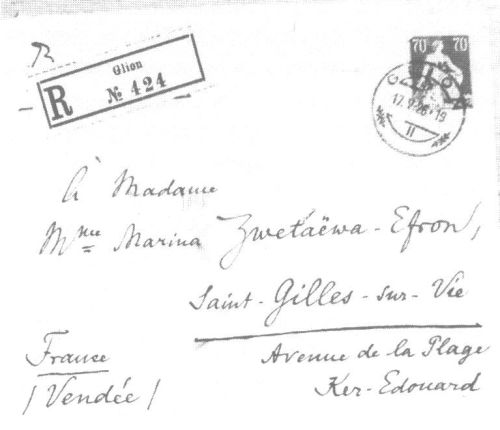 R
Glion
№ 424
70 70
À Madame
Mme Marina Zwetaëwa-Efron,
Saint-Gilles-sur-Vie
France
Avenue de la Plage
/Vendée/
Ker-Edouard